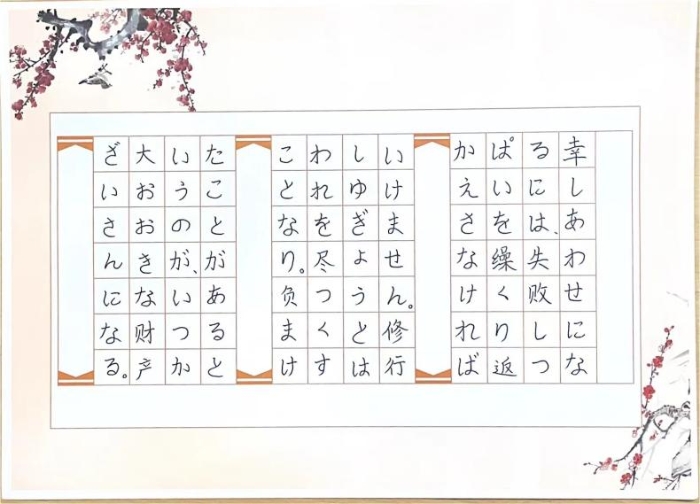 幸しあわせにな
るには、失敗しつ
ぱいを繰くり返
かえさなければ
いけません。修行
しゅぎょうとは
われを尽つくす
ことなり。负まけ
たことがあると
いうのが、いつか
大おおきな财产
ざいさんになる。